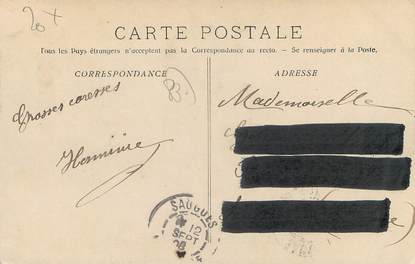 20 x
CARTE POSTALE
Tous les Pays étrangers n'acceptent pas la Correspondance au recto. – Se renseigner à la Poste.
CORRESPONDANCE
ADRESSE
Grosses caresses
Herminie
Mademoiselle
SAUGUES
12
SEPT